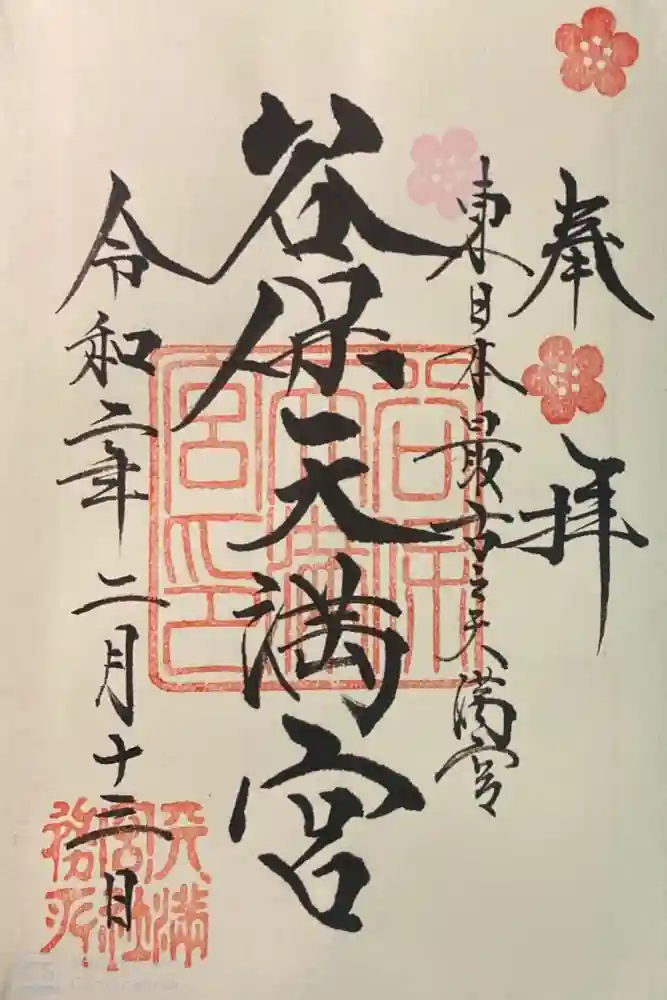 奉拝
東日本最古之天満宮
谷保天満宮
令和二年二月十三日
谷保天満宮印
天満宮社務所